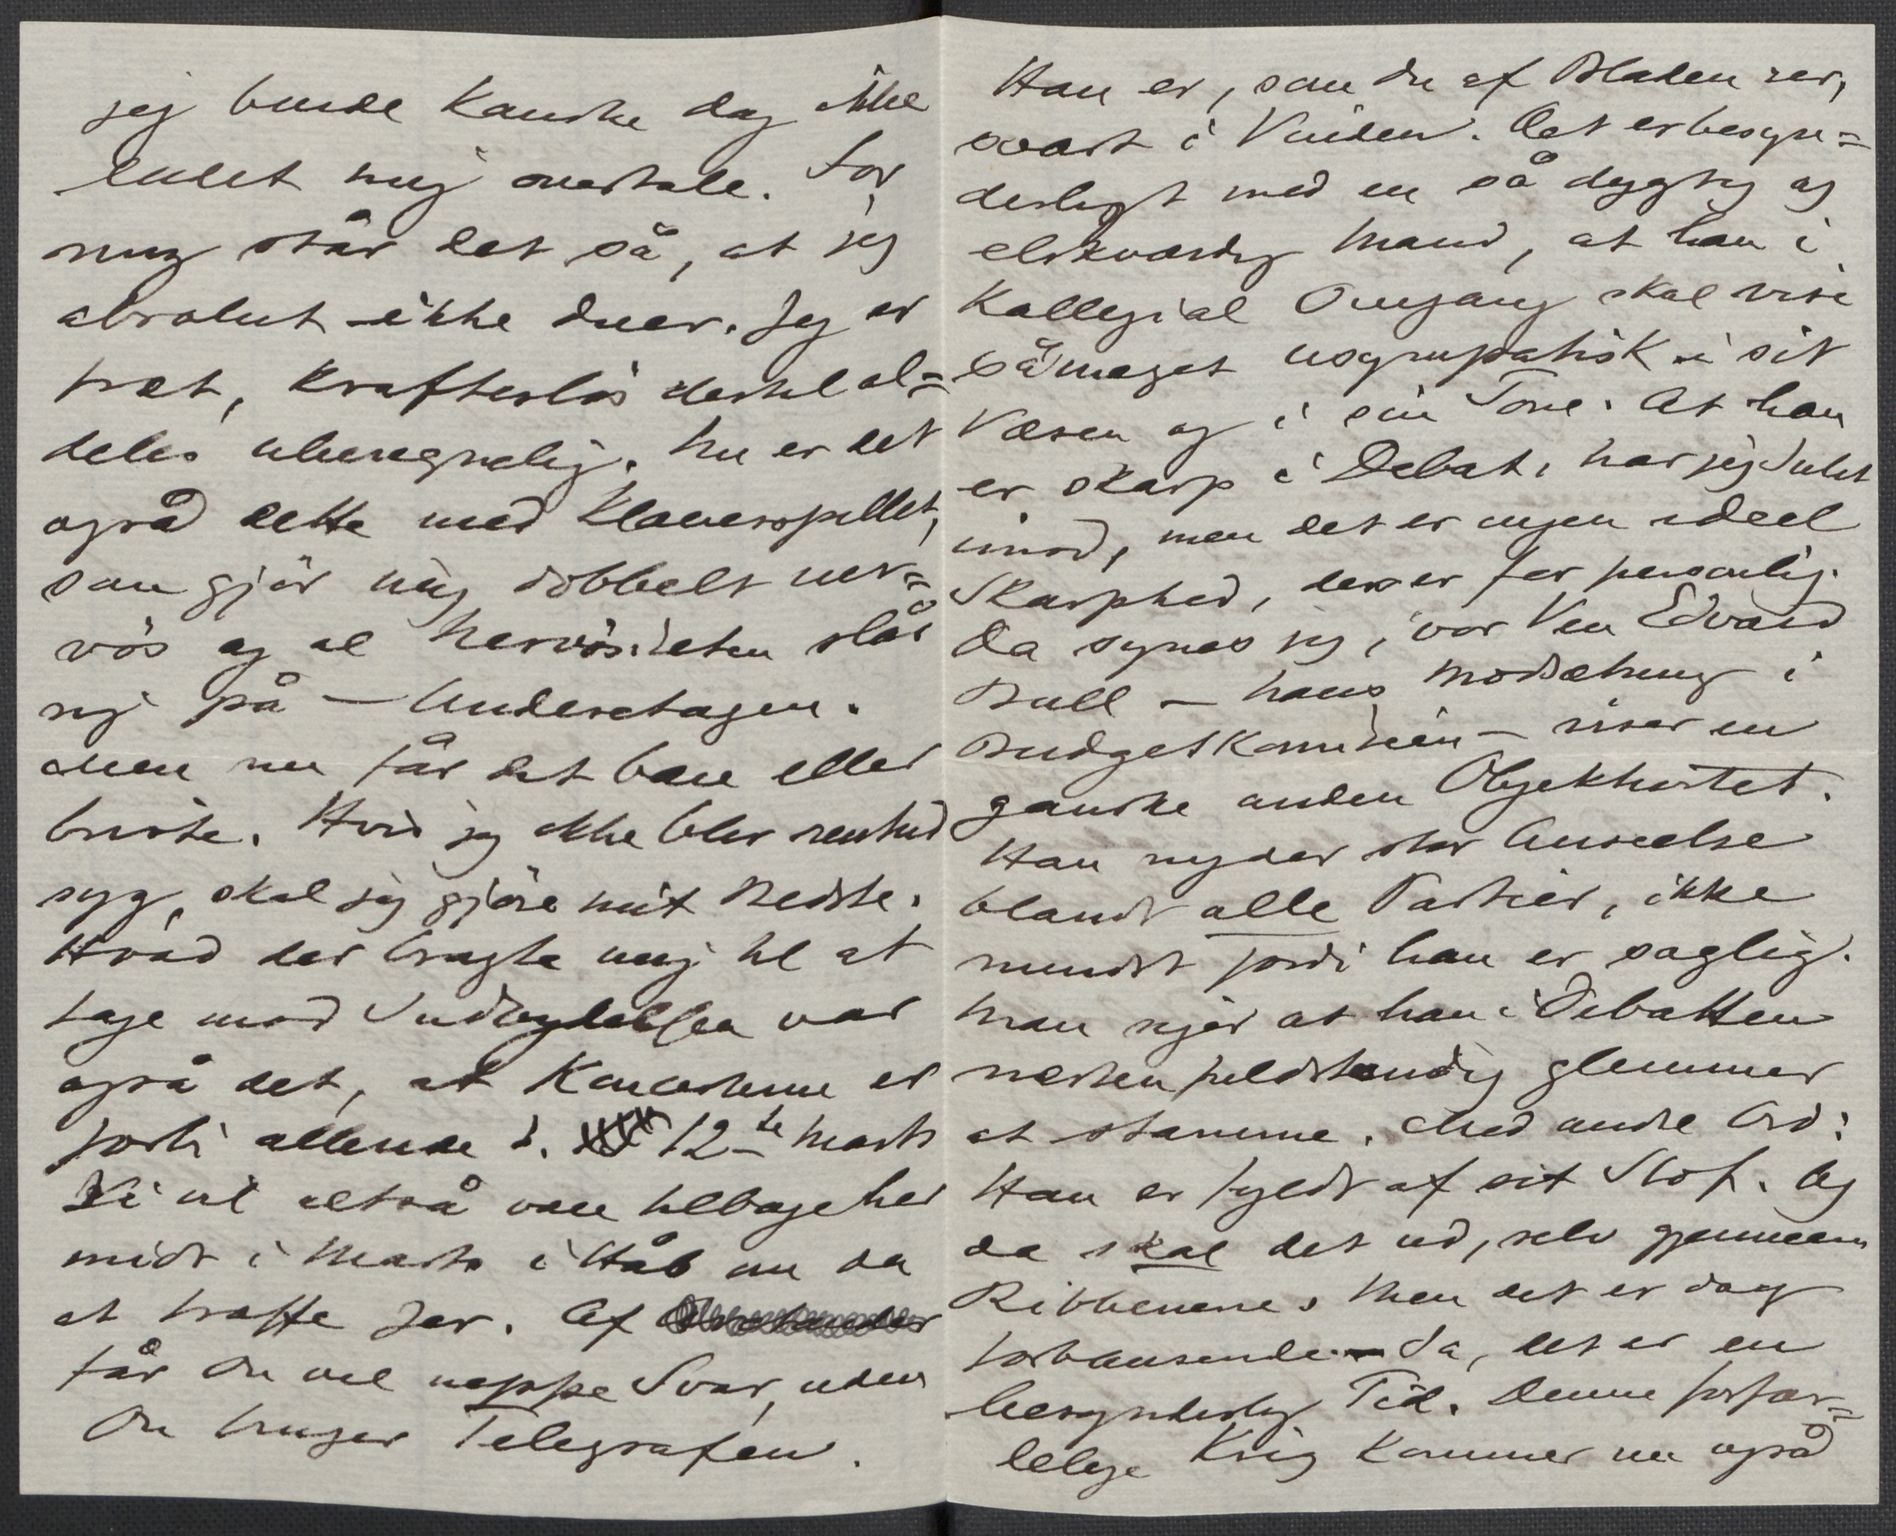 jeg burde kanske dog ikke
ladet mig overtale. For
mig står det så, at jeg
absolut ikke duer. Jeg er
træt, kraftesløs dertil al=
deles uberegnelig. Nu er det
også dette med Klaverspillet,
som gjør mig dobbelt ner=
vøs og al Nervøsiteten slår
sig på – Underetagen.
Men nu får det bære eller
briste. Hvis jeg ikke blir rentud
syg, skal jeg gjøre mit Bedste.
Hvad der bragte mig til at
tage mod Indbydelsen var
også det, at Koncerterne er
forbi allerede d. 12te Marts
Vi vil altså være tilbage her
midt i Marts i Håb om da
at træffe Jer. Af
får Du vel neppe Svar, uden
Du bruger Telegrafen.
Han er, som Du af Bladene ser,
svært i Vinden. Det er besyn=
derligt med en så dygtig og
elskværdig Mand, at han i
kollegial Omgang skal vise
så meget usympatisk i sit
Væsen og i sin Tone. At han
er skarp i Debat, har jeg Intet
imod, men det er ingen ideel
Skarphed, den er for personlig.
Da synes jeg, vor Ven Edvard
Bull – hans Modsætning i
Budgetkomiteen – viser en
ganske anden Objektivitet.
Han nyder stor Anseelse
blandt alle Partier, ikke
mindst fordi han er saglig.
Man siger at han i Debatten
næsten fuldstændig glemmer
at stamme. Med andre Ord:
Han er fyldt af sit Stof. Og
da skal det ud, selv gjennem
Ribbenene. Men det er dog
forbausende. Ja, det er en
besynderlig Tid. Denne forfær=
delige Krig kommer nu også